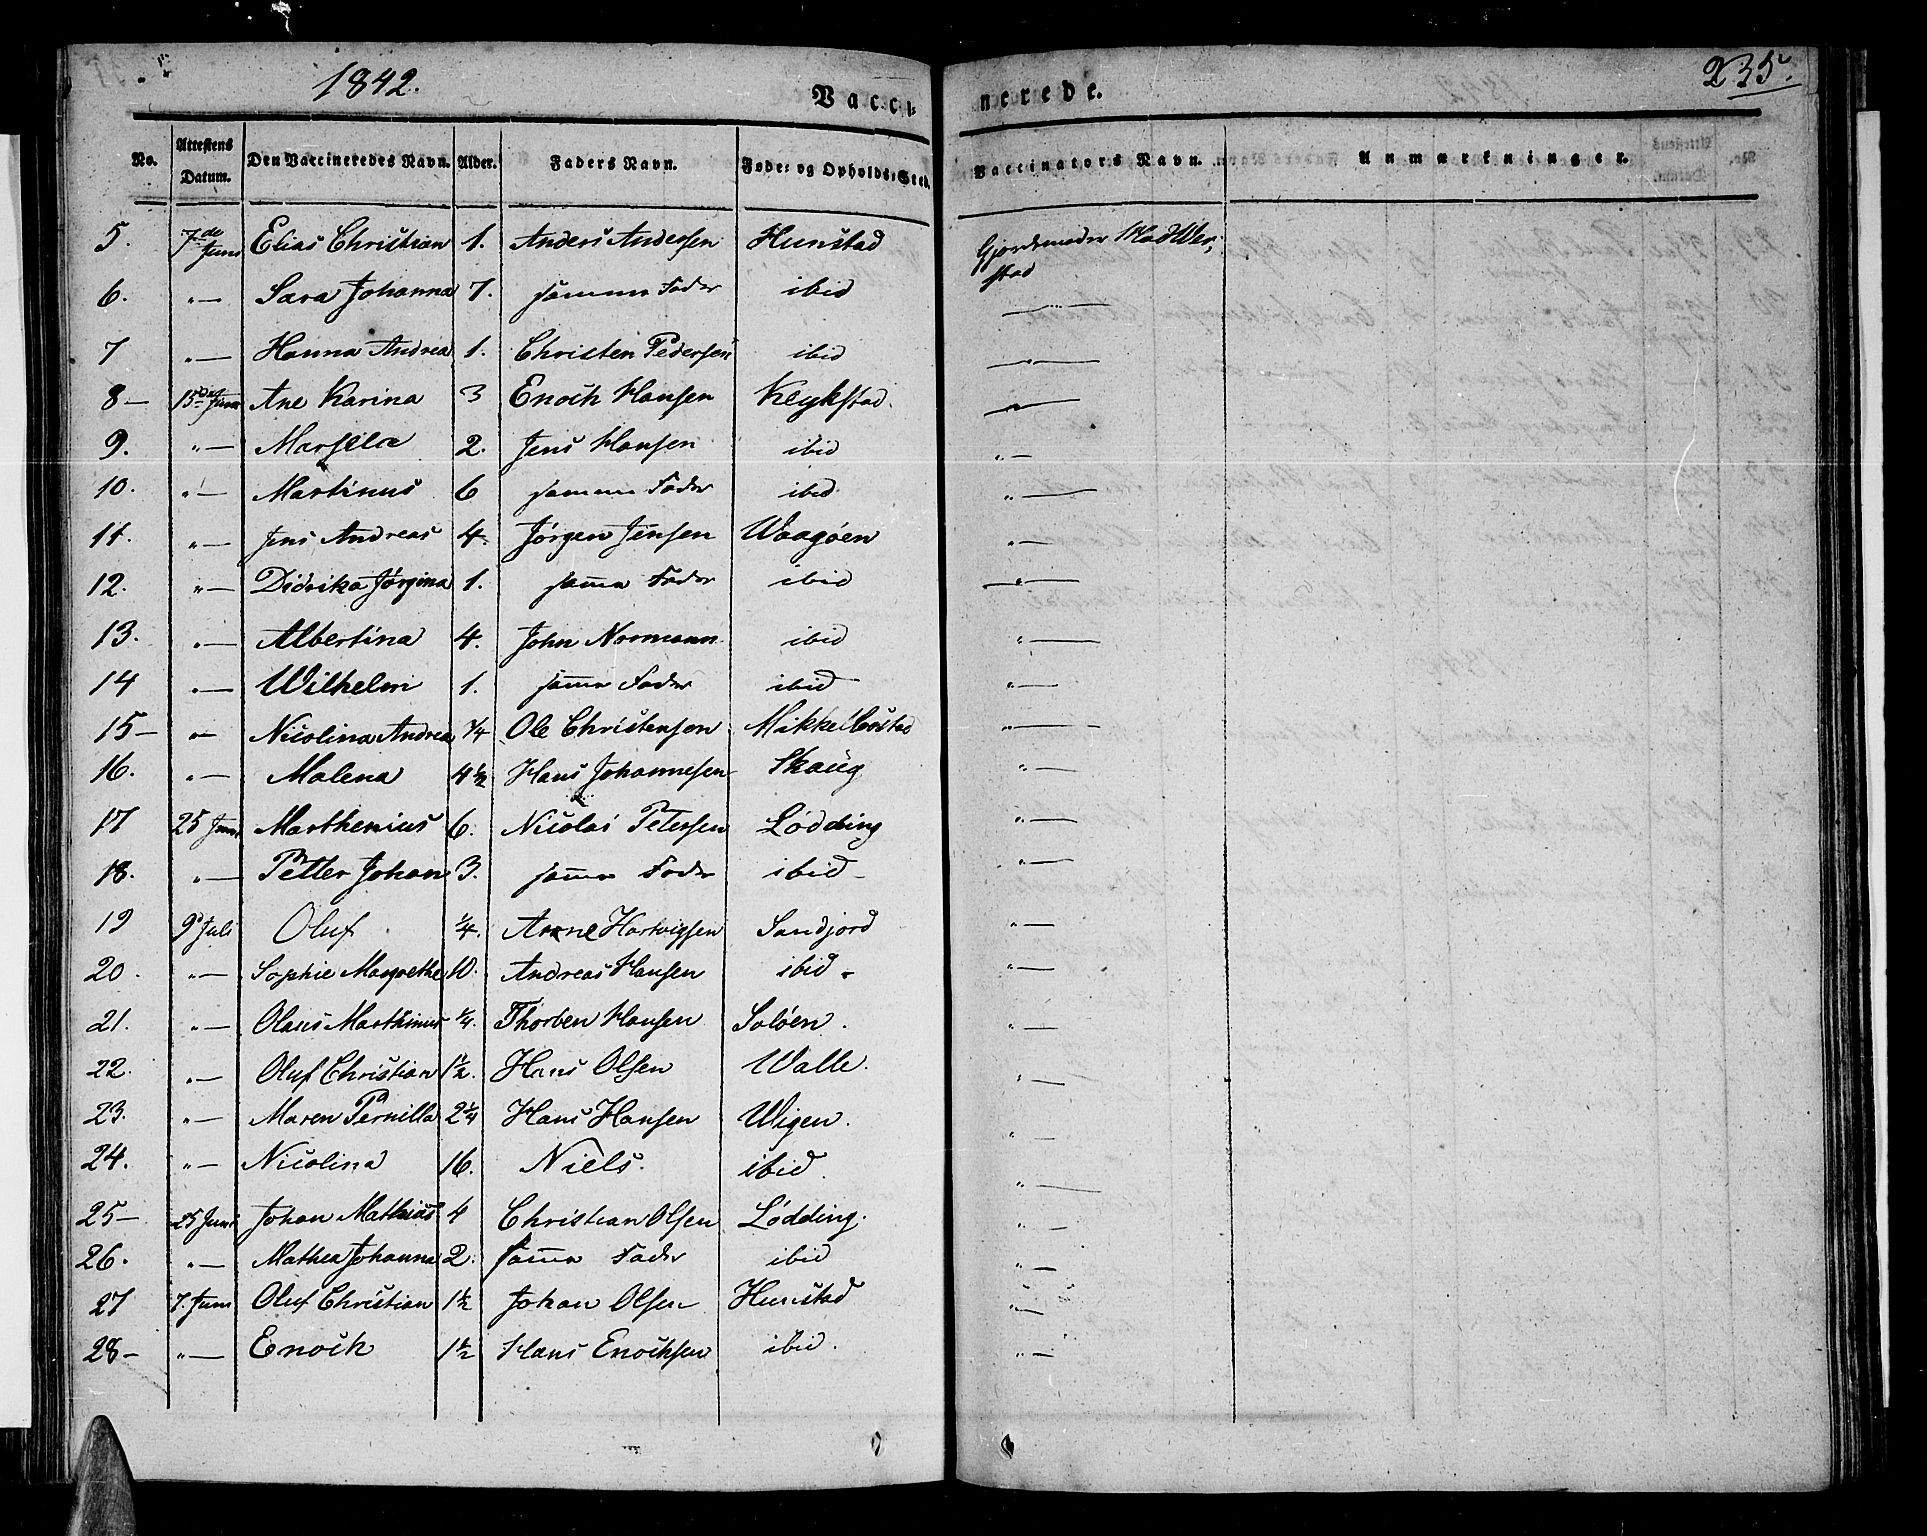 1842.
235.
Vacci nerede.
No. Attestens Datum. Den Vaccineredes Navn. Alder. Faders Navn. Føde- og Opholds-Sted. Vaccinators Navn. Anmærkninger.
5. 7de Juni Elias Christian 1. Anders Andersen Hunstad Gjordemoder
stad
6. "— Sara Johanna 7. samme Fader ibid "—
7 "— Hanna Andrea 1. Christen Pedersen ibid "—
8— 15de Juni Ane Karina 3 Enoch Hansen Kleykstad. "—
9. "— Marselia 2. Jens Hansen ibid "—
10. "— Martinus 6 samme Fader ibid "—
11. "— Jens Andreas 4. Jørgen Jensen Waagøen "—
12. "— Didrika Jørgina 1. samme Fader ibid "—
13. "— Albertina 4. John Normann ibid "—
14 "— Wilhelm 1. samme Fader ibid "—
15— "— Nicolina Andrea 1/4 Ole Christensen Mikkelbostad "—
16. "— Malena 4 1/2 Hans Johannesen Skaug "—
17 25 Juni Marthenius 6. Nicolai Petersen Lødding "—
18. "— Petter Johan 3. samme Fader ibid "—
19 9d Juli Oluf 1/4. Arne Hartvigsen Sandjord "—
20. "— Sophie Margrethe 10. Andreas Hansen ibid "—
21. "— Olaus Marthinus 1/4. Thorben Hansen Soløen. "—
22. "— Oluf Christian 1 1/2. Hans Olsen Walle. "—
23. "— Maren Pernilla 2 1/4 Hans Hansen Wigen. "—
24. "— Nicolina 16. Niels. ibid. "—
25— 25 Juni Johan Mathias 4 Christian Olsen Lødding. "—
26. "— Mathea Johanna 2. samme Fader ibid "—
27 7. Juni Oluf Christian 1 1/2 Johan Olsen Hunstad "—
28— "— Enock 1 1/2 Hans Enochsen ibid. "—